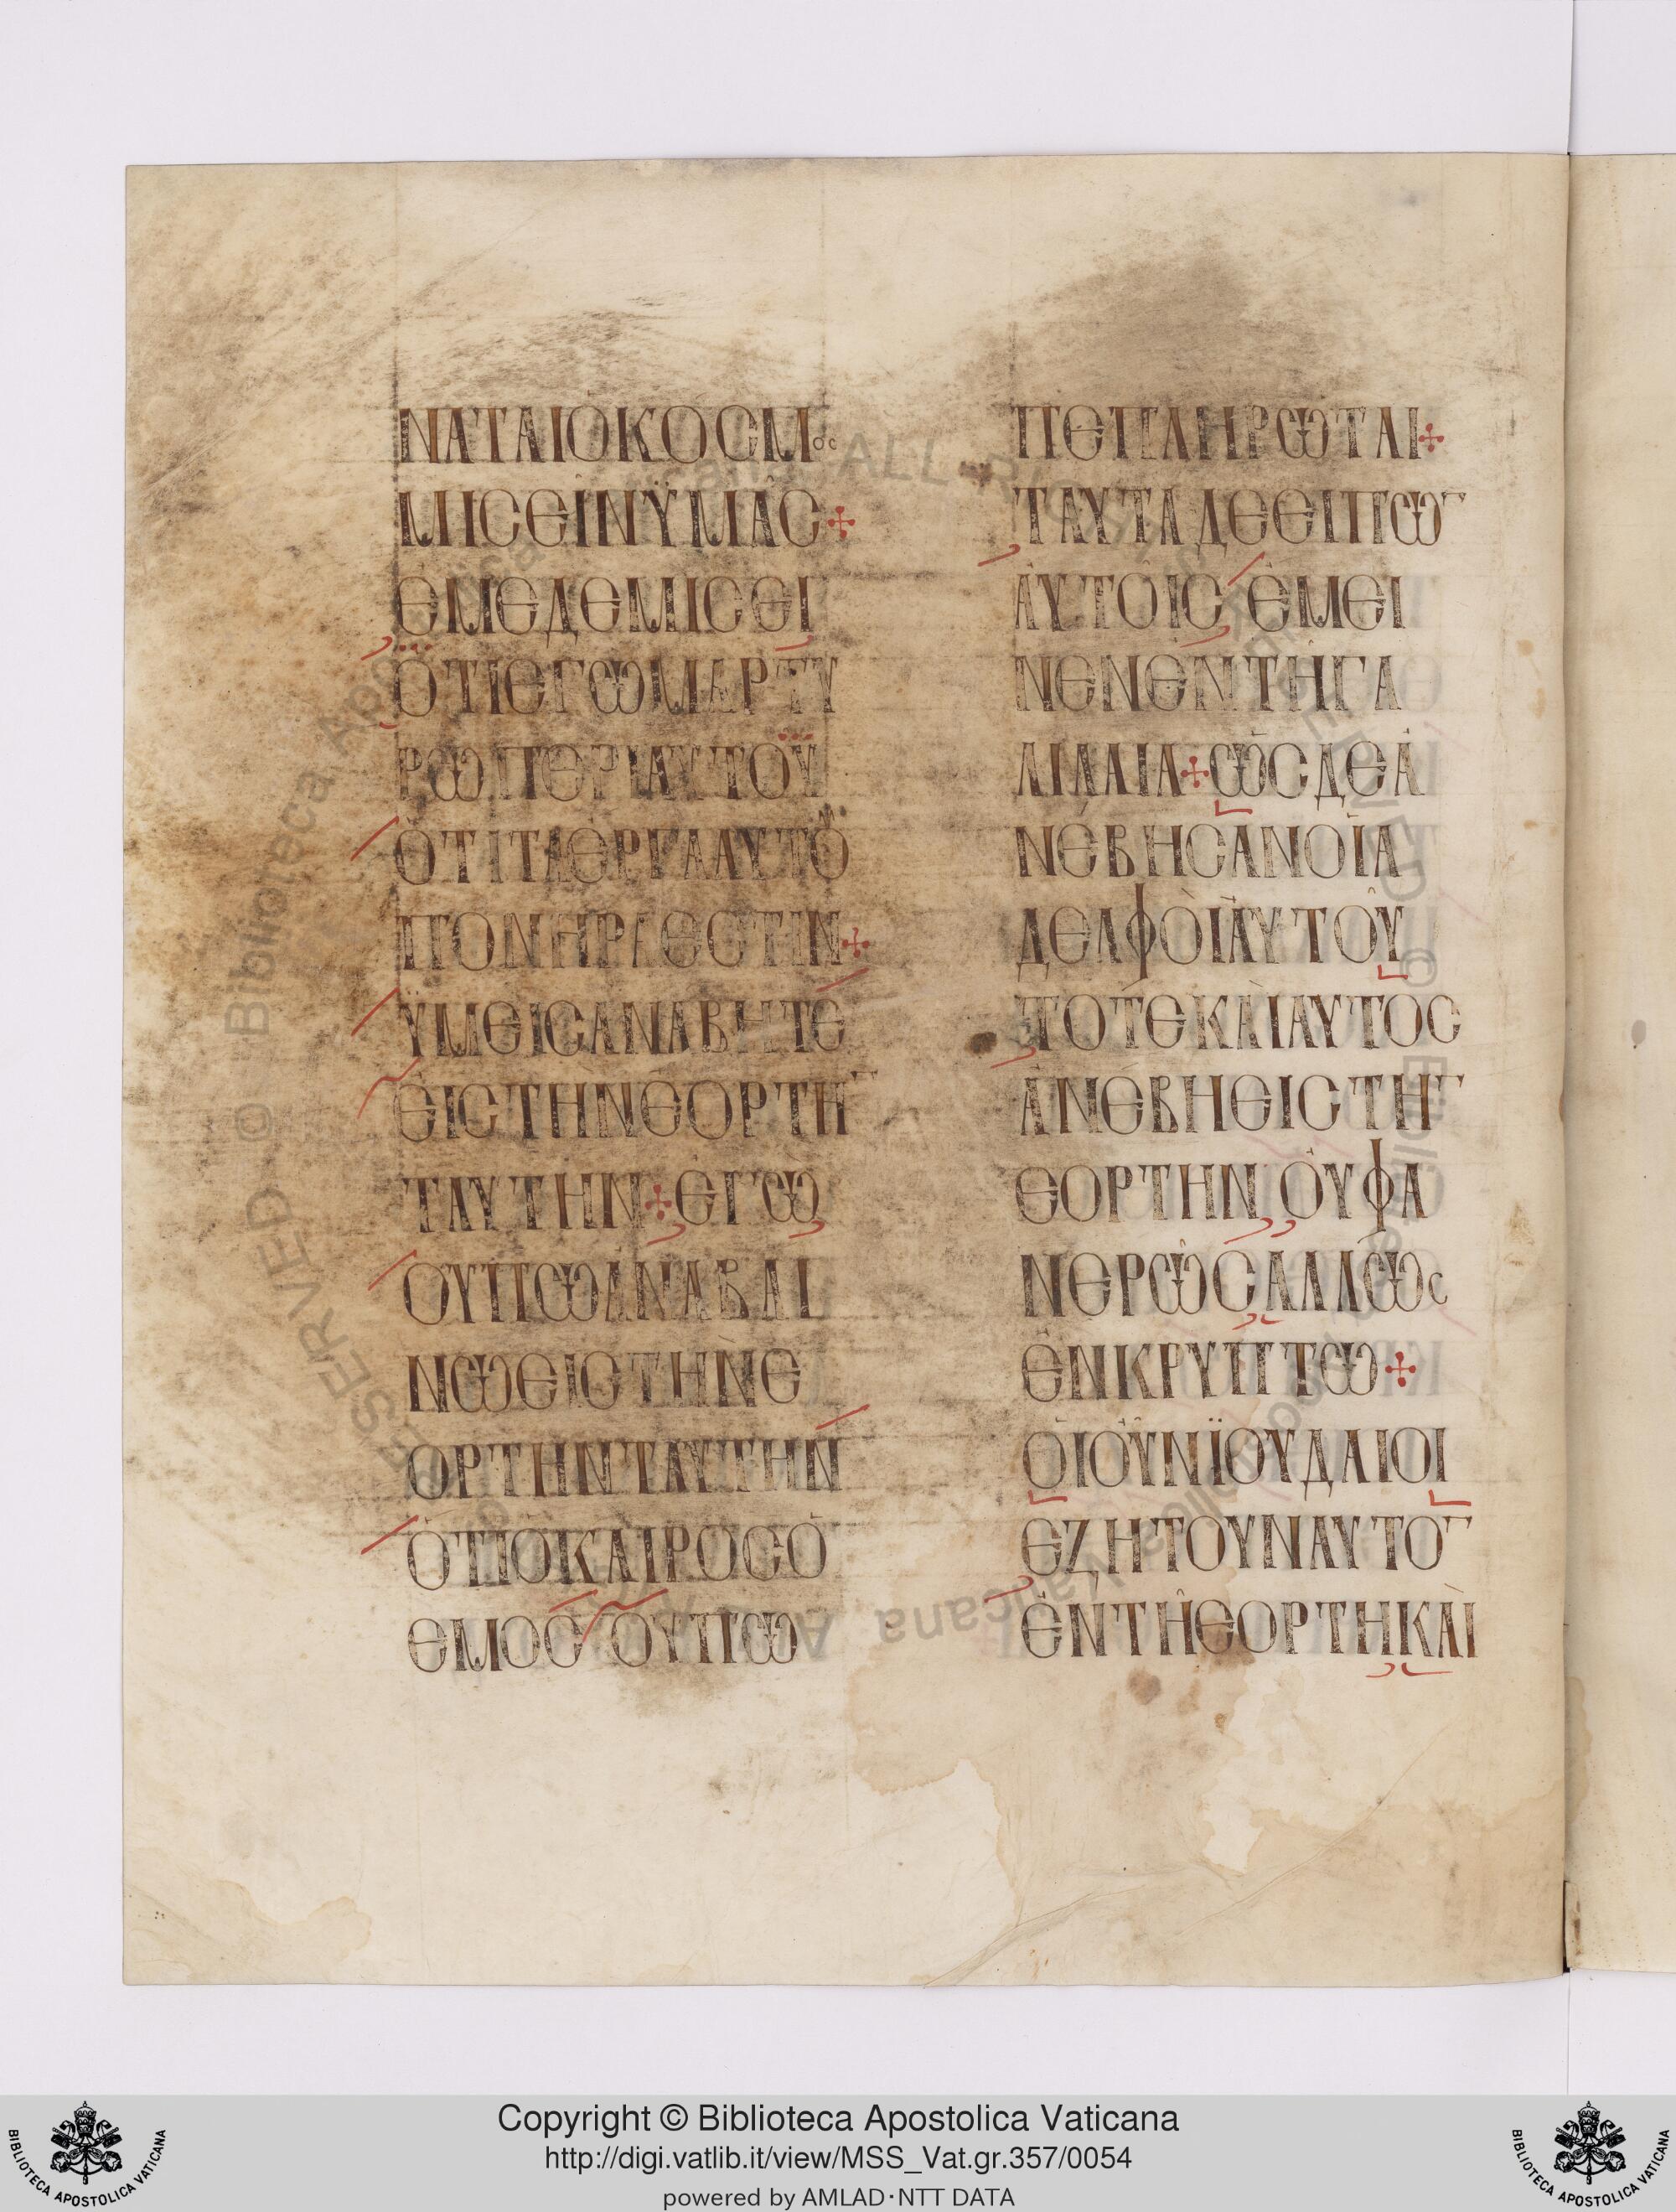 ΝΑΤΑΙΟΚΟϹΜος
ΜΙϹΕΙΝΫΜΑϹ
ΕΜΕΔΕΜΙϹΕΙ
ΟΤΙΕΓΩΜΑΡΤΥ
ΡΩΠΕΡΙΑΥΤΟΥ
ΟΤΙΤΑΕΡΓΑΑΥΤΟΥ
ΠΟΝΗΡΑΕϹΤΙΝ
ΫΜΕΙϹΑΝΑΒΗΤΕ
ΕΙϹΤΗΝΕΟΡΤΗ¯
ΤΑΥΤΗΝ ΕΓΩ
ΟΥΠΩΑΝΑΒΑΙ
ΝΩΕΙϹΤΗΝΕ
ΟΡΤΗΝΤΑΥΤΗΝ
ΟΤΙΟΚΑΙΡΟϹΟ
ΕΜΟϹ ΟΥΠΩ
ΠΕΠΛΗΡΩΤΑΙ
ΤΑΥΤΑΔΕΕΙΠΩ¯
ΑΥΤΟΙϹ ΕΜΕΙ
ΝΕΝΕΝΤΗΓΑ
ΛΙΛΑΙΑ ΩϹΔΕΑ
ΝΕΒΗϹΑΝΟΙΑ
ΔΕΛΦΟΙΑΥΤΟΥ
ΤΟΤΕΚΑΙΑΥΤΟϹ
ΑΝΕΒΗΕΙϹΤΗ¯
ΕΟΡΤΗΝ ΟΥΦΑ
ΝΕΡΩϹΑΛΛΩϹ
ΕΝΚΡΥΠΤΩ
ΟΙΟΥΝΪΟΥΔΑΙΟΙ
ΕΖΗΤΟΥΝΑΥΤΟ¯
ΕΝΤΗΕΟΡΤΗΚΑΙ
Copyright © Biblioteca Apostolica Vaticana
http://digi.vatlib.it/view/MSS_Vat.gr.357/0054
powered by AMLAD·NTT DATA
BIBLIOTECA APOSTOLICA VATICANA
BIBLIOTECA APOSTOLICA VATICANA